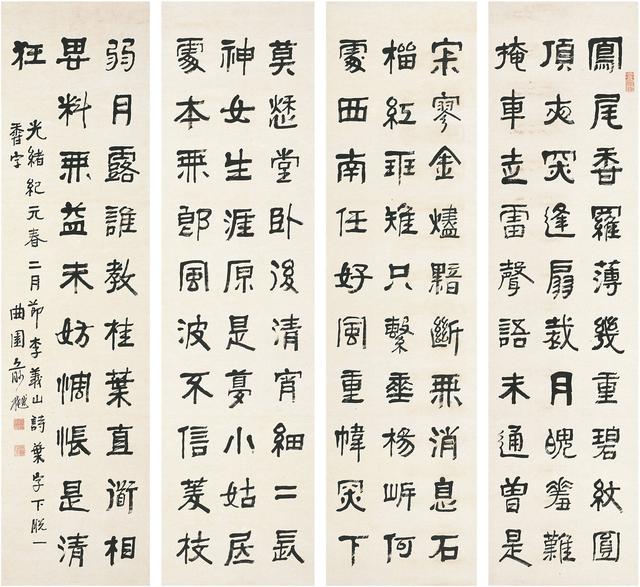 鳳尾香羅薄幾重碧紋圓
頂夜罙逢扇裁月魄羞難
掩車走雷聲語未通曾是
寂寥金燼黯斷無消息石
榴紅斑騅只繫垂楊岸何
處西南任好風重幃罙下
莫愁堂臥後清宵細二長
神女生涯原是夢小姑居
處本無郎風波不信菱枝
弱月露誰教桂葉直道相
思料無益未妨惆悵是清
狂
光緒紀元春二月節李義山詩葉字下脫一
香字
曲園俞樾